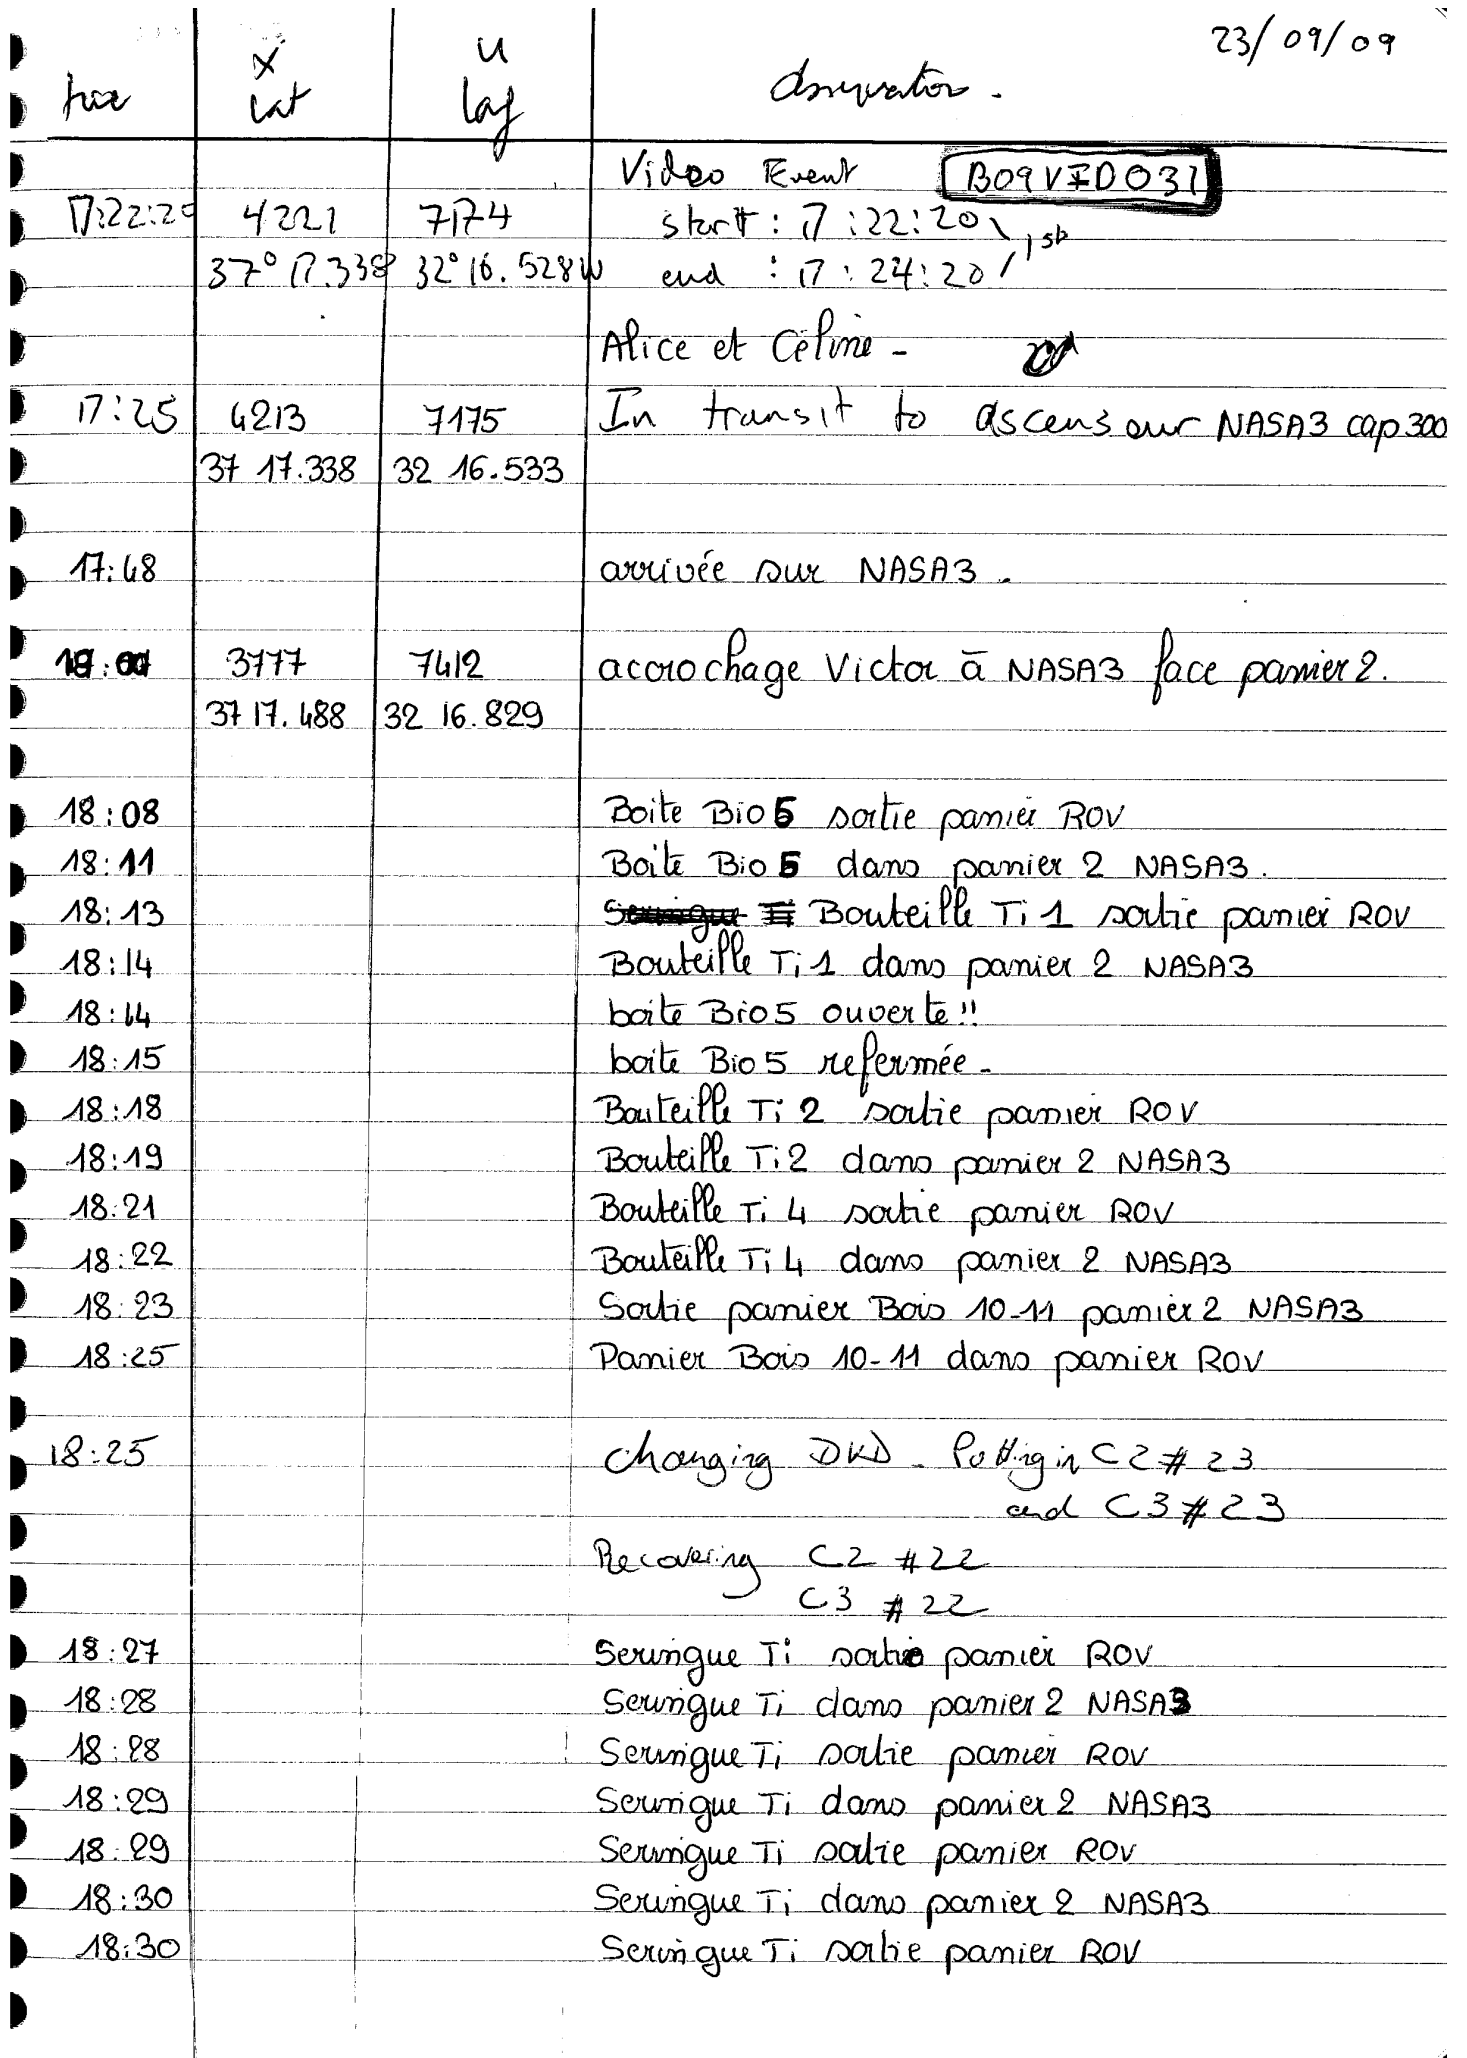 23/09/09
X
lat
Video Event B09VID031
17:22:20 4221 7174 start : 17:22:20
37° 17.338 32° 16.528W end : 17:24:20
Alice et Céline -
17:25 4213 7175 In transit to ascenseur NASA3 cap 300
37 17.338 32 16.533
17:48 arrivée sur NASA3.
3777 7412 accrochage Victor à NASA3 face panier 2.
37 17.488 32 16.829
18:08 Boite Bio 5 sortie panier ROV
18:11 Boite Bio 5 dans panier 2 NASA3.
18:13 Bouteille Ti 1 sortie panier ROV
18:14 Bouteille Ti 1 dans panier 2 NASA3
18:14 boite Bio5 ouverte!!
18:15 boite Bio 5 refermée -
18:18 Bouteille Ti 2 sortie panier ROV
18:19 Bouteille Ti 2 dans panier 2 NASA3
18:21 Bouteille Ti 4 sortie panier ROV
18:22 Bouteille Ti 4 dans panier 2 NASA3
18:23 Sortie panier Bois 10-11 panier 2 NASA3
18:25 Panier Bois 10-11 dans panier ROV
18:25 Changing DVD - Putting in C2 # 23
and C3 # 23
Recovering C2 #22
C3 #22
18:27 Seringue Ti sortie panier ROV
18:28 Seringue Ti dans panier 2 NASA3
18:28 Seringue Ti sortie panier ROV
18:29 Seringue Ti dans panier 2 NASA3
18:29 Seringue Ti sortie panier ROV
18:30 Seringue Ti dans panier 2 NASA3
18:30 Seringue Ti sortie panier ROV